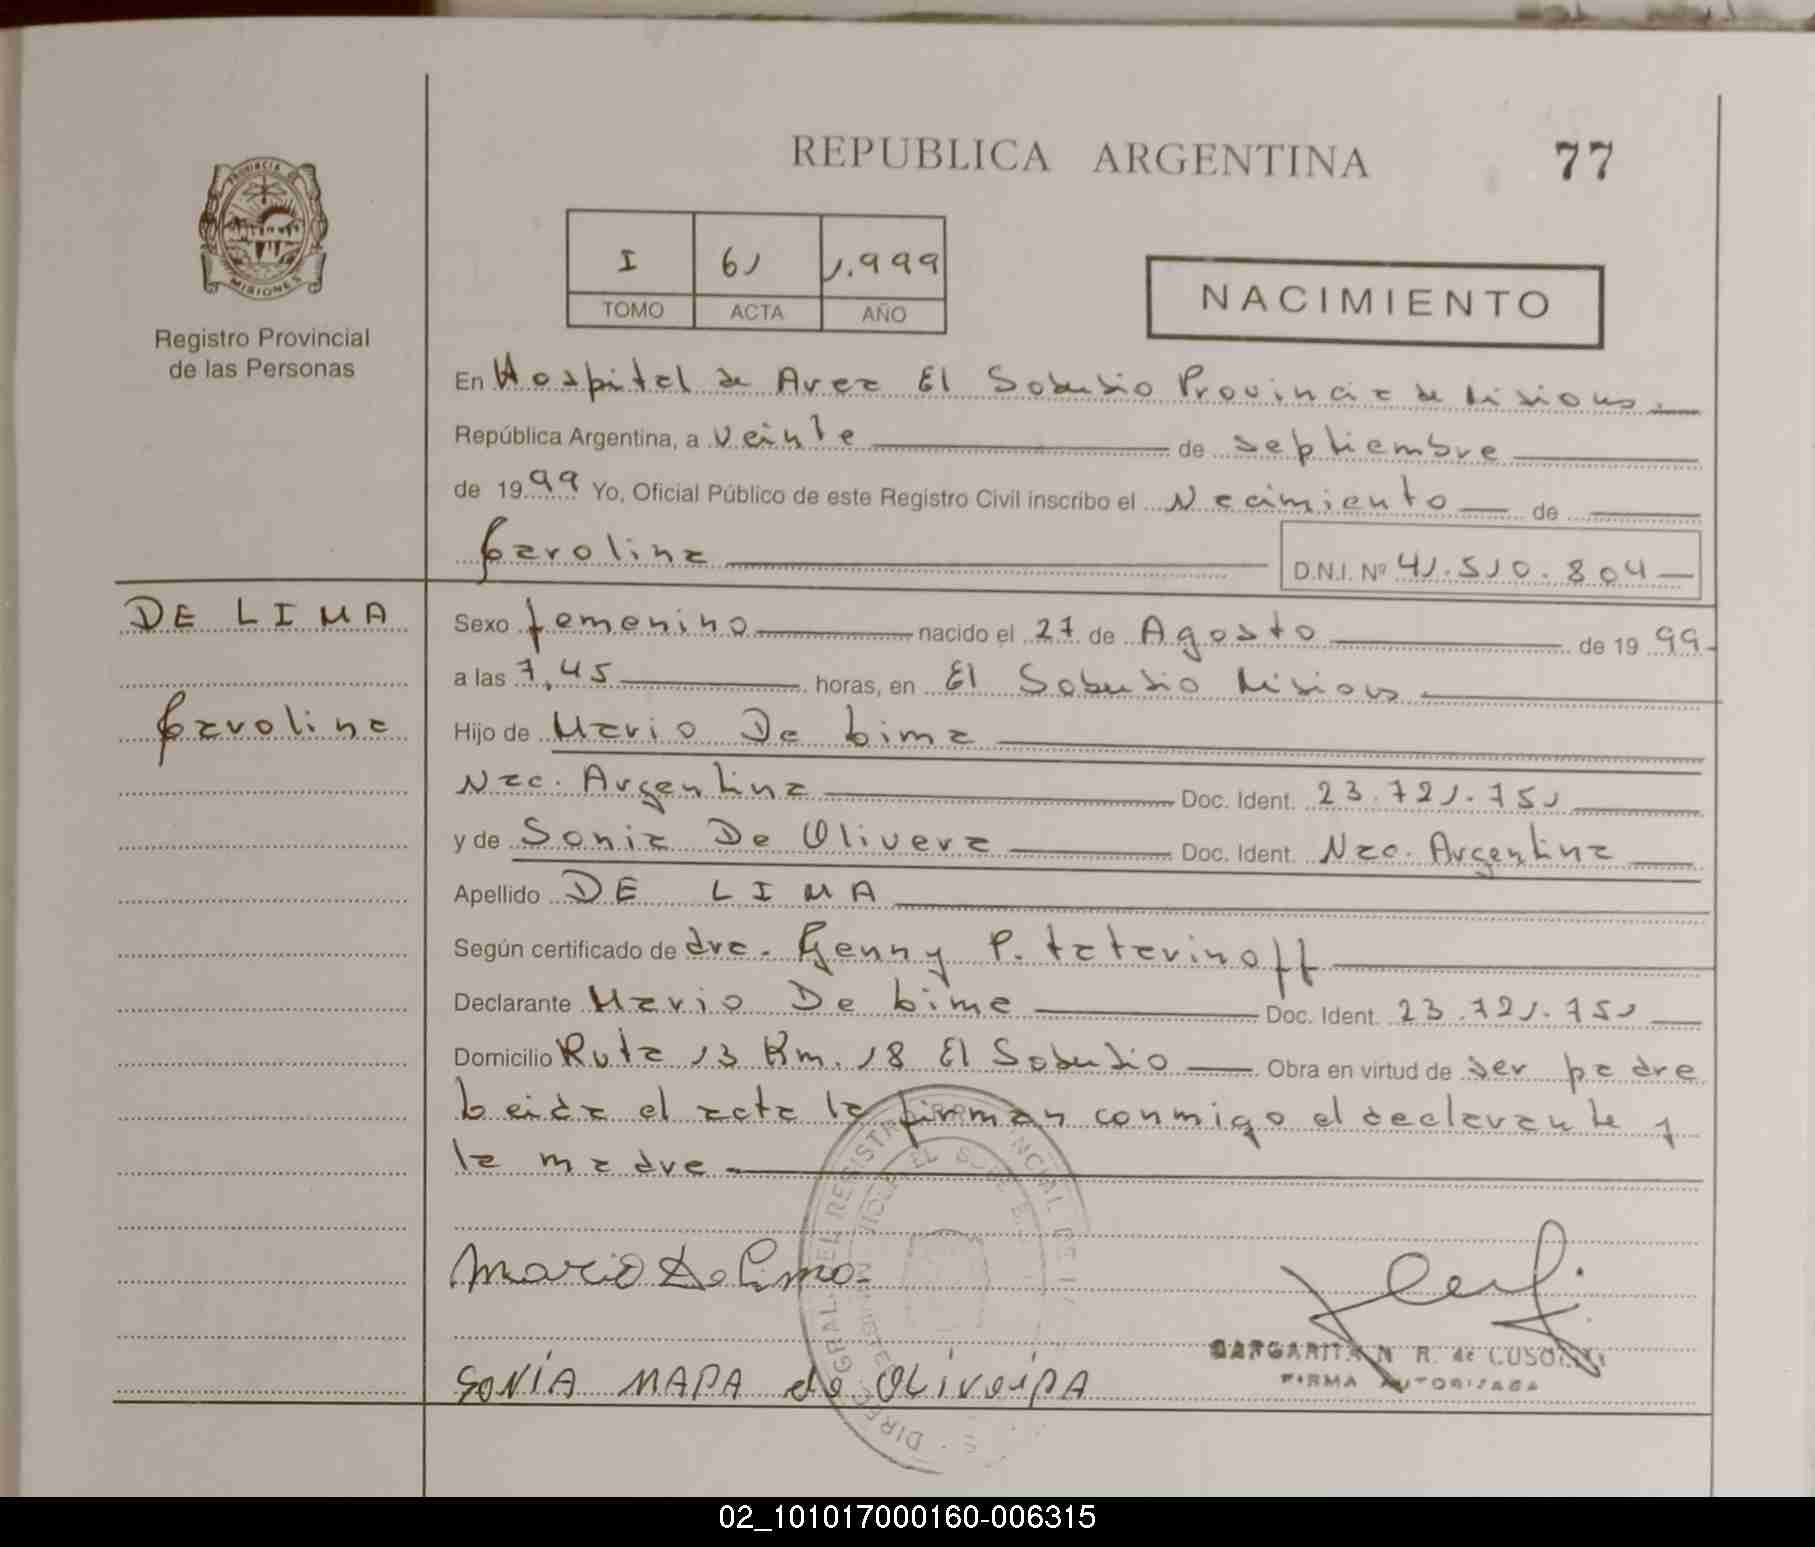 REPUBLICA ARGENTINA 77
PROVINCIA DE
MISIONES
Registro Provincial
de las Personas
I 61 1.999
TOMO ACTA AÑO
NACIMIENTO
En Hospital de Area El Soberbio Provincia de Misiones.
República Argentina, a veinte de septiembre
de 1999 Yo, Oficial Público de este Registro Civil inscribo el Nacimiento de
Carolina D.N.I. Nº 41.510.804
DE LIMA
Carolina
Sexo femenino nacido el 27 de Agosto de 1999
a las 7,45 horas, en El Soberbio Misiones
Hijo de Mario De Lima
Nac. Argentina Doc. Ident. 23.721.751
y de Sonia De Olivera Doc. Ident. Nac. Argentina
Apellido DE LIMA
Según certificado de dra. Genny P. tatarinoff
Declarante Mario De Lima Doc. Ident. 23.721.751
Domicilio Ruta 13 Km. 18 El Soberbio Obra en virtud de ser padre
Leida el acta la firman conmigo el declarante y
la madre
Mario De Lima
SONIA MARA de OLIVEIRA
MARGARITA N. R. de
FIRMA AUTORIZADA
02_101017000160-006315